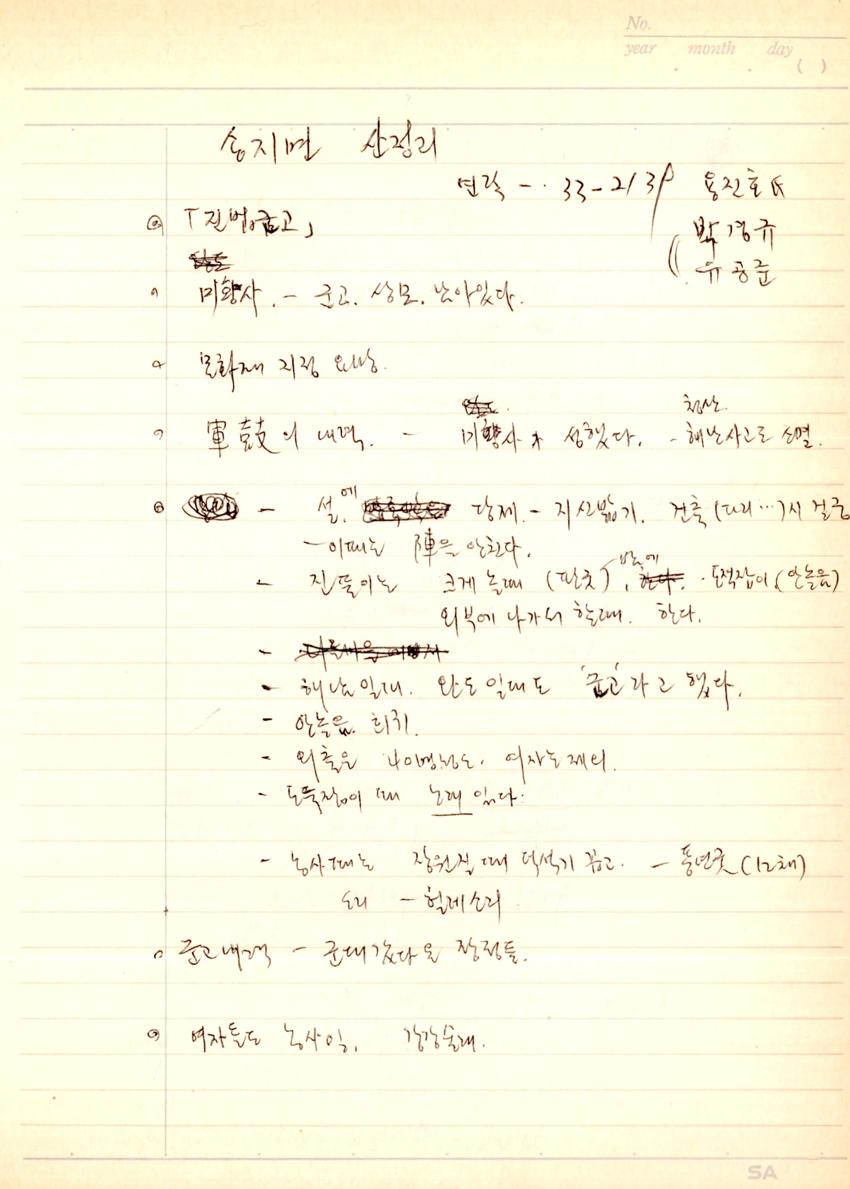 No.
year month day
( )
송지면 산정리
연락 - · 33-2139 용진호 氏
「진법군고」 박경규
유공준
미황사. - 군고. 상모. 남아있다.
문화재 지정 요망.
청산
軍鼓의 내력. - 미황사 성했다. - 해난사고로 소멸.
- 설.에 당제. - 지신밟기. 건축 (다리…)시 걸궁
- 이때는 陣을 안친다.
- 진똘이는 크게 놀때 (판굿), 밤에 · 도적잡이 (안놀음)
외부에 나가서 할때. 한다.
-
- 해남일대. 완도일대도 '군고'라고 했다.
- 안놀음. 회귀.
- 외출은 40명정도. 여자는 제외.
- 도둑잡이 때 노래 있다.
- 농사때는 장원질 때 덕석기 꼽고. - 풍년굿 (12채)
소리 - 헐레소리
군고내력 - 군대갔다온 장정들.
여자들도 농사일. 강강술래.
SA